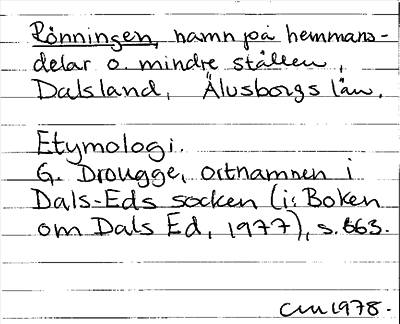 Rönningen, namn på hemmans-
delar o. mindre ställen,
Dalsland, Älvsborgs län.
Etymologi.
G. Drougge, ortnamnen i
Dals-Eds socken (i: Boken
om Dals Ed, 1977), s. 663.
CM 1978.